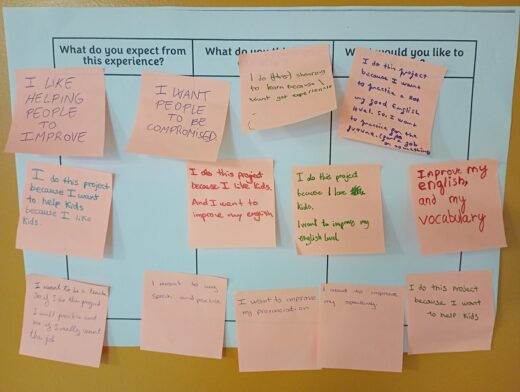 What do you expect from
this experience?
What do you
What would you like to
I LIKE
HELPING
PEOPLE
TO
IMPROVE
I WANT
PEOPLE
TO BE
COMPROMISED
I do (this)
to learn
want get experience
I do this project
because I want
to practice a lot
my good English
level. So, I want
to practice for the
future.
I do this project
because I want
to help kids
because I like
kids.
I do this project
because I like kids.
And I want to
improve my english
I do this project
because I love
kids.
I want to improve my
english level.
Improve my
english,
and my
vocabulary
I want to be a
So if I do this project
I will practice and
see if I really want
this job
I want to
speak and practice
I want to improve
my pronunciation
I want to improve
my speaking
I do this project
because I want
to help kids